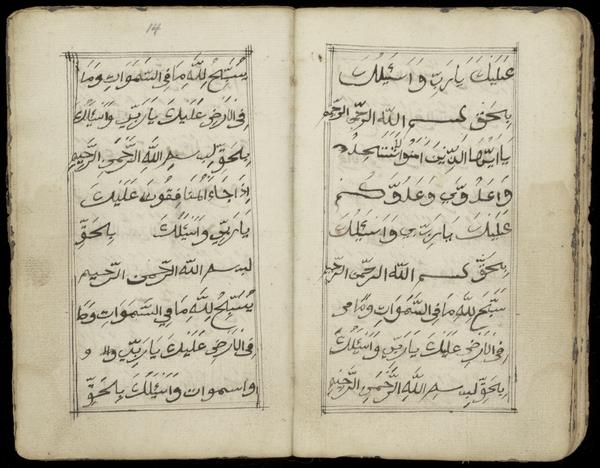 عليك يا رب واسئلك
بحق بسم الله الرحمن الرحيم
يا ايها الذين امنوا لا تتخذوا
وا عدوي وعدوكم
عليك يا رب واسئلك
بحق بسم الله الرحمن الرحيم
سبح لله ما في السموات وما في
في الارض عليك يا ربي واسئلك
بحق بسم الله الرحمن الرحيم
14
يسبح لله ما في السموات وما
في الارض عليك يا ربي واسئلك
بحق بسم الله الرحمن الرحيم
اذا جاءك المنافقون عليك
يا ربي واسئلك بحق
بسم الله الرحمن الرحيم
يسبح لله ما في السموات وما
في الارض عليك يا ربي
واسموات واسئلك بحق